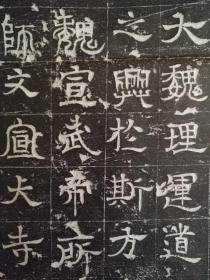 大魏理運道
之興於斯方
魏宣武帝所
師文宣大寺